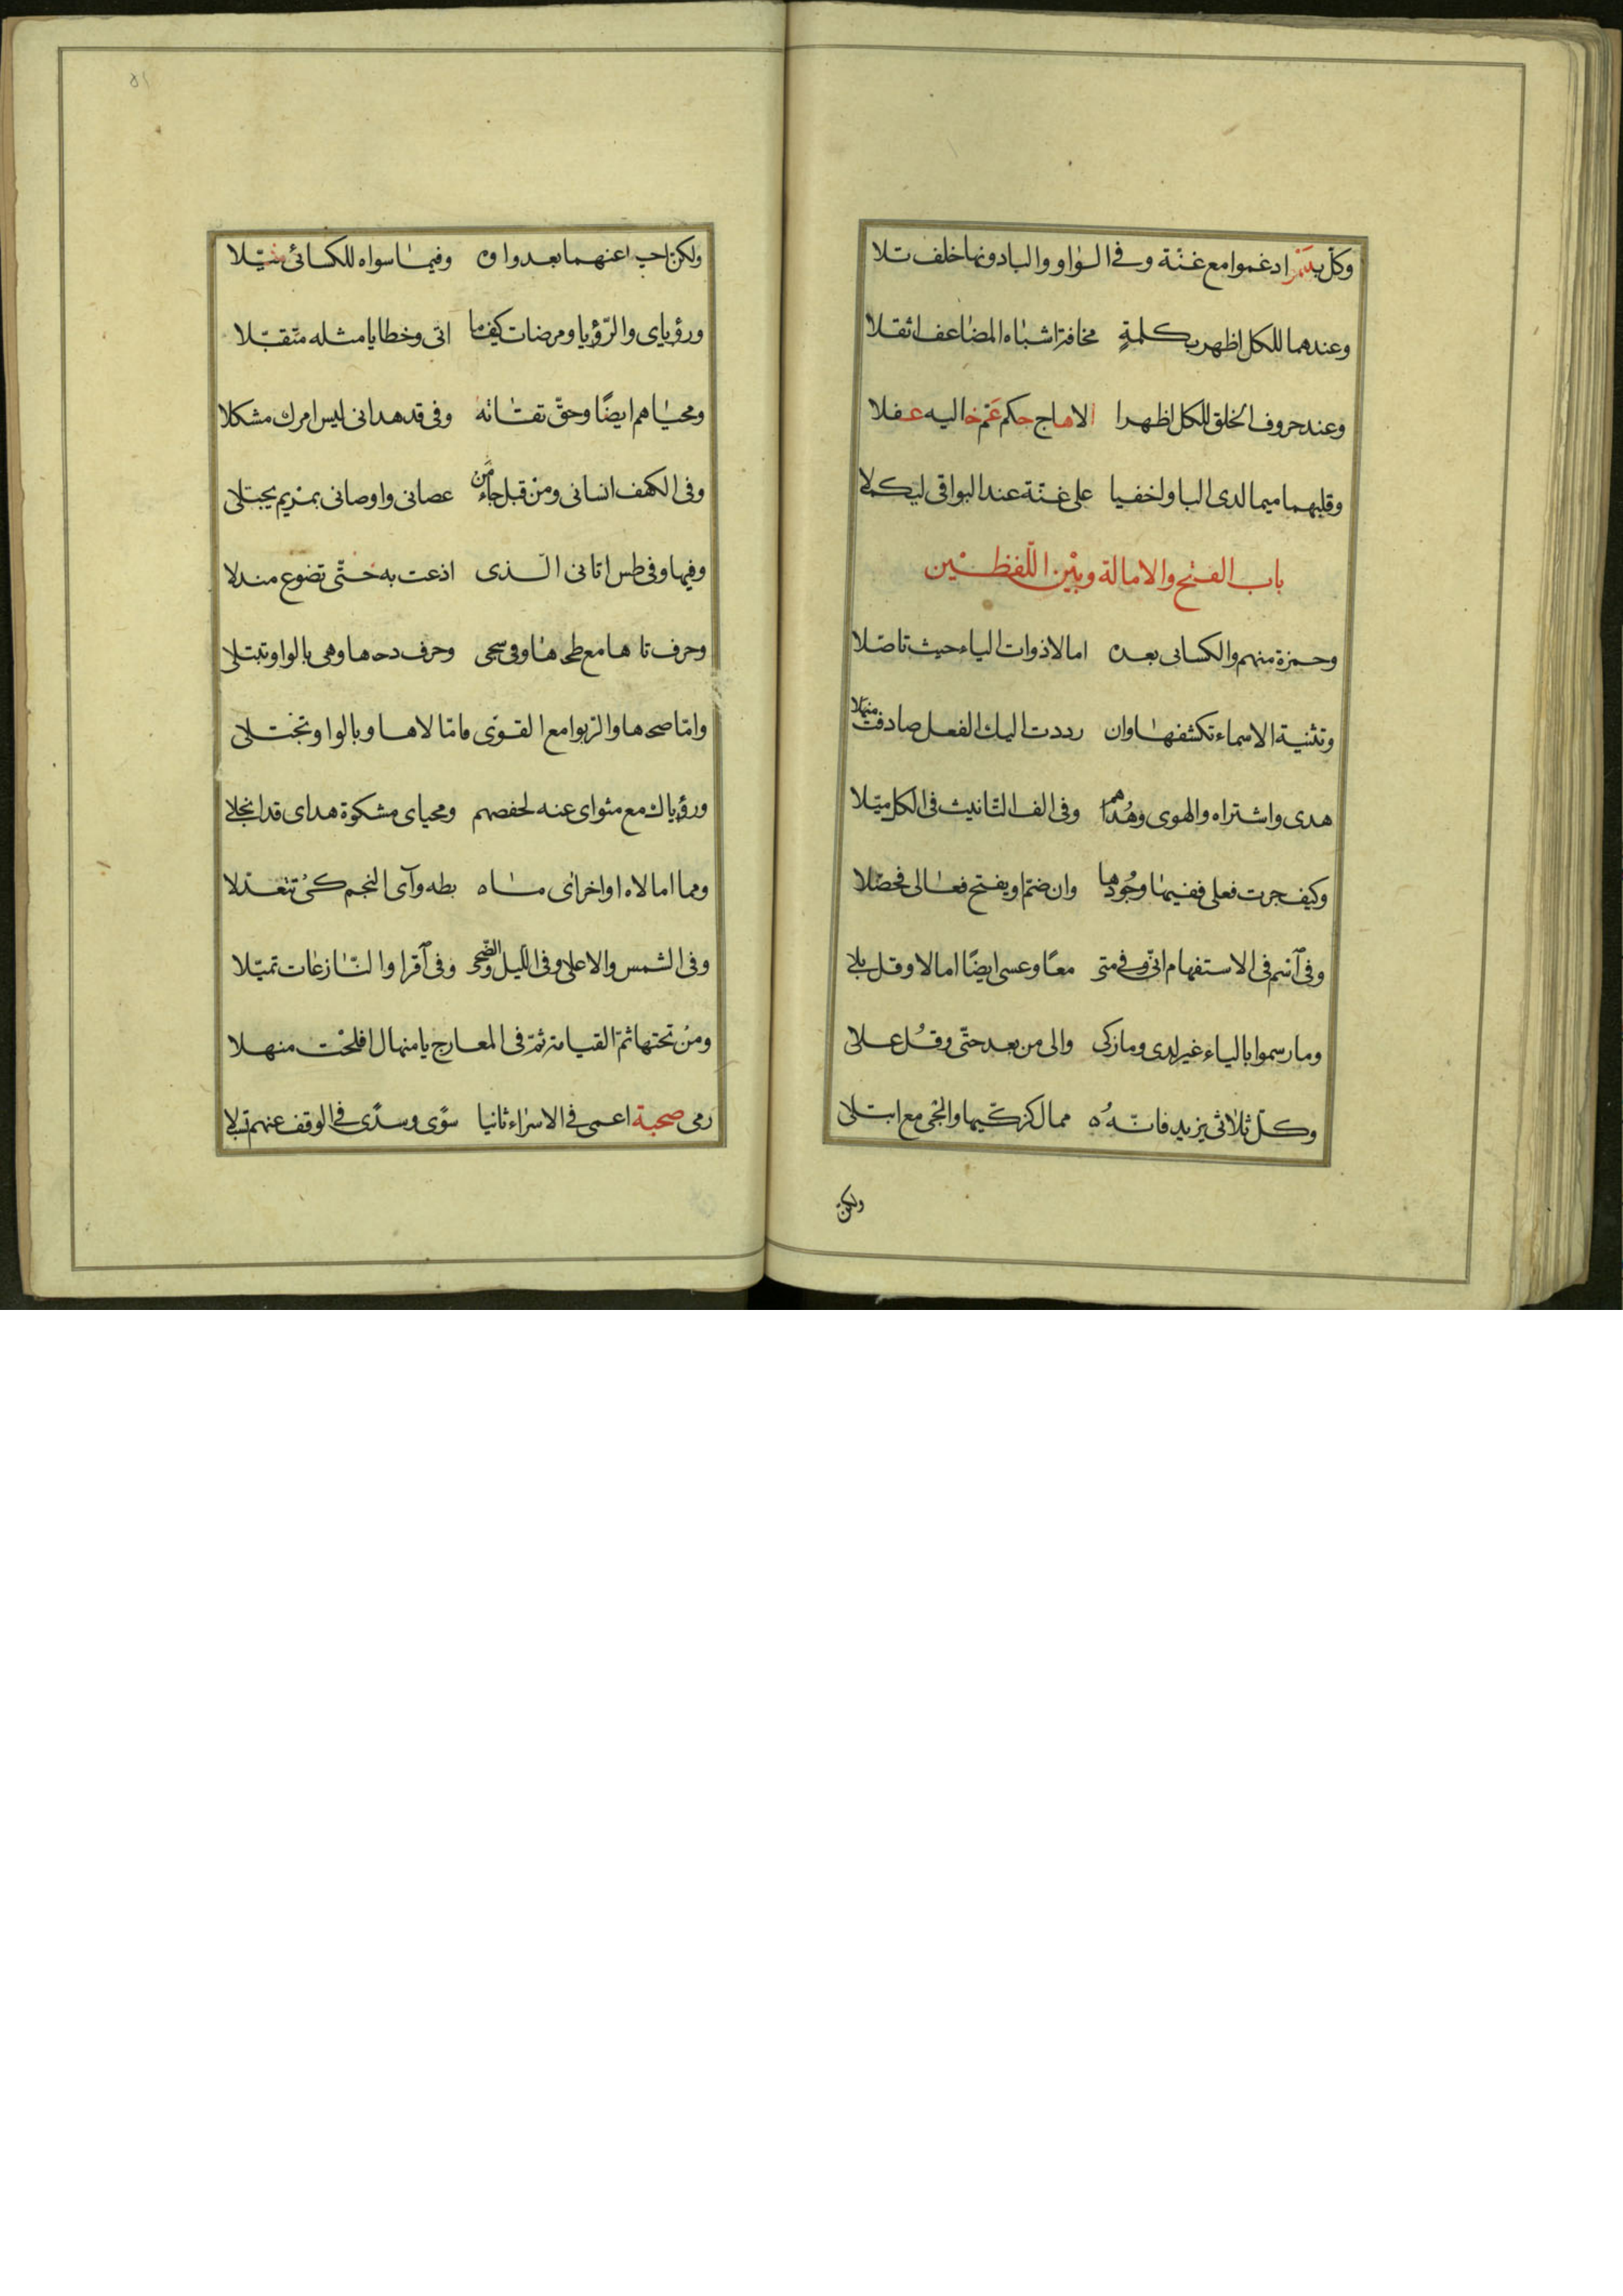 وكلّ بينمو ادغموا مع غنّة وفى الواو واليا دونها خلف تلا
وعندهما للكل اظهر بكلمةٍ مخافة اشباه المضاعف اثقلا
وعند حروف الحلق للكل اظهرا الا هاج حكم عَمّ خاليه غفلا
وقلبهما ميما لدى البا واخفيا على غنّة عند البواقى ليكملا
باب الفتح والامالة وبيْن اللّفظيْن
وحمزة منهم والكسائى بعده امالا ذوات الياء حيث تاصّلا
وتثنية الاسماء تكشفها وان رددت اليك الفعل صادفت منهلا
هدى واشتراه والهوى وهُداهم وفى الف التّانيث فى الكل ميّلا
وكيف جرت فعلى ففيها وجُودها وان ضمّ او يفتح فعالى فحصّلا
وفى آسم فى الاستفهام انّى وفى متى معًا وعسى ايضًا امالا وقل بلى
وما رسموا بالياء غير لدى وما زكى والى من بعد حتّى وقُل على
وكلّ ثلاثى يزيد فانّهُ ممال كزكّيها وانجى مع ابتلى
ولكن
ولكن احيا عنهما بعد واوه وفيما سواه للكسائى ميّلا
ورؤياى والرّؤيا ومرضات كيفما اتى وخطايا مثله متقبّلا
ومحياهم ايضًا وحقّ تقاته وفى قد هدانى ليس امرك مشكلا
وفى الكهف انسانى ومنْ قبل جاء مَن عصانى واوصانى بمريم يجتلى
وفيها وفى طس اتانى الّذى اذعت به حتّى تضوع مندلا
وحرف تلاها مع طحاها وفى سجى وحرف دحاها وهى بالواو تبتلى
وامّا ضحاها والرّبوا مع القوى فامالاها وبالواو تختلى
ورؤياك مع مثواى عنه لحفصهم ومحياى مشكوة هداى قد انجلى
ومما امالاه اواخر اى ما بطه وآى النجم كىْ تتعدّلا
وفى الشمس والاعلى وفى الليل والضّحى وفى آقرا والنّازعات تميّلا
ومنْ تحتها ثمّ القيامة ثمّ فى المعارج يا منهال افلحْت منهلا
رمى صحبة اعمى فى الاسراء ثانيا سوًى وسدًى فى الوقف عنهم تسبلا